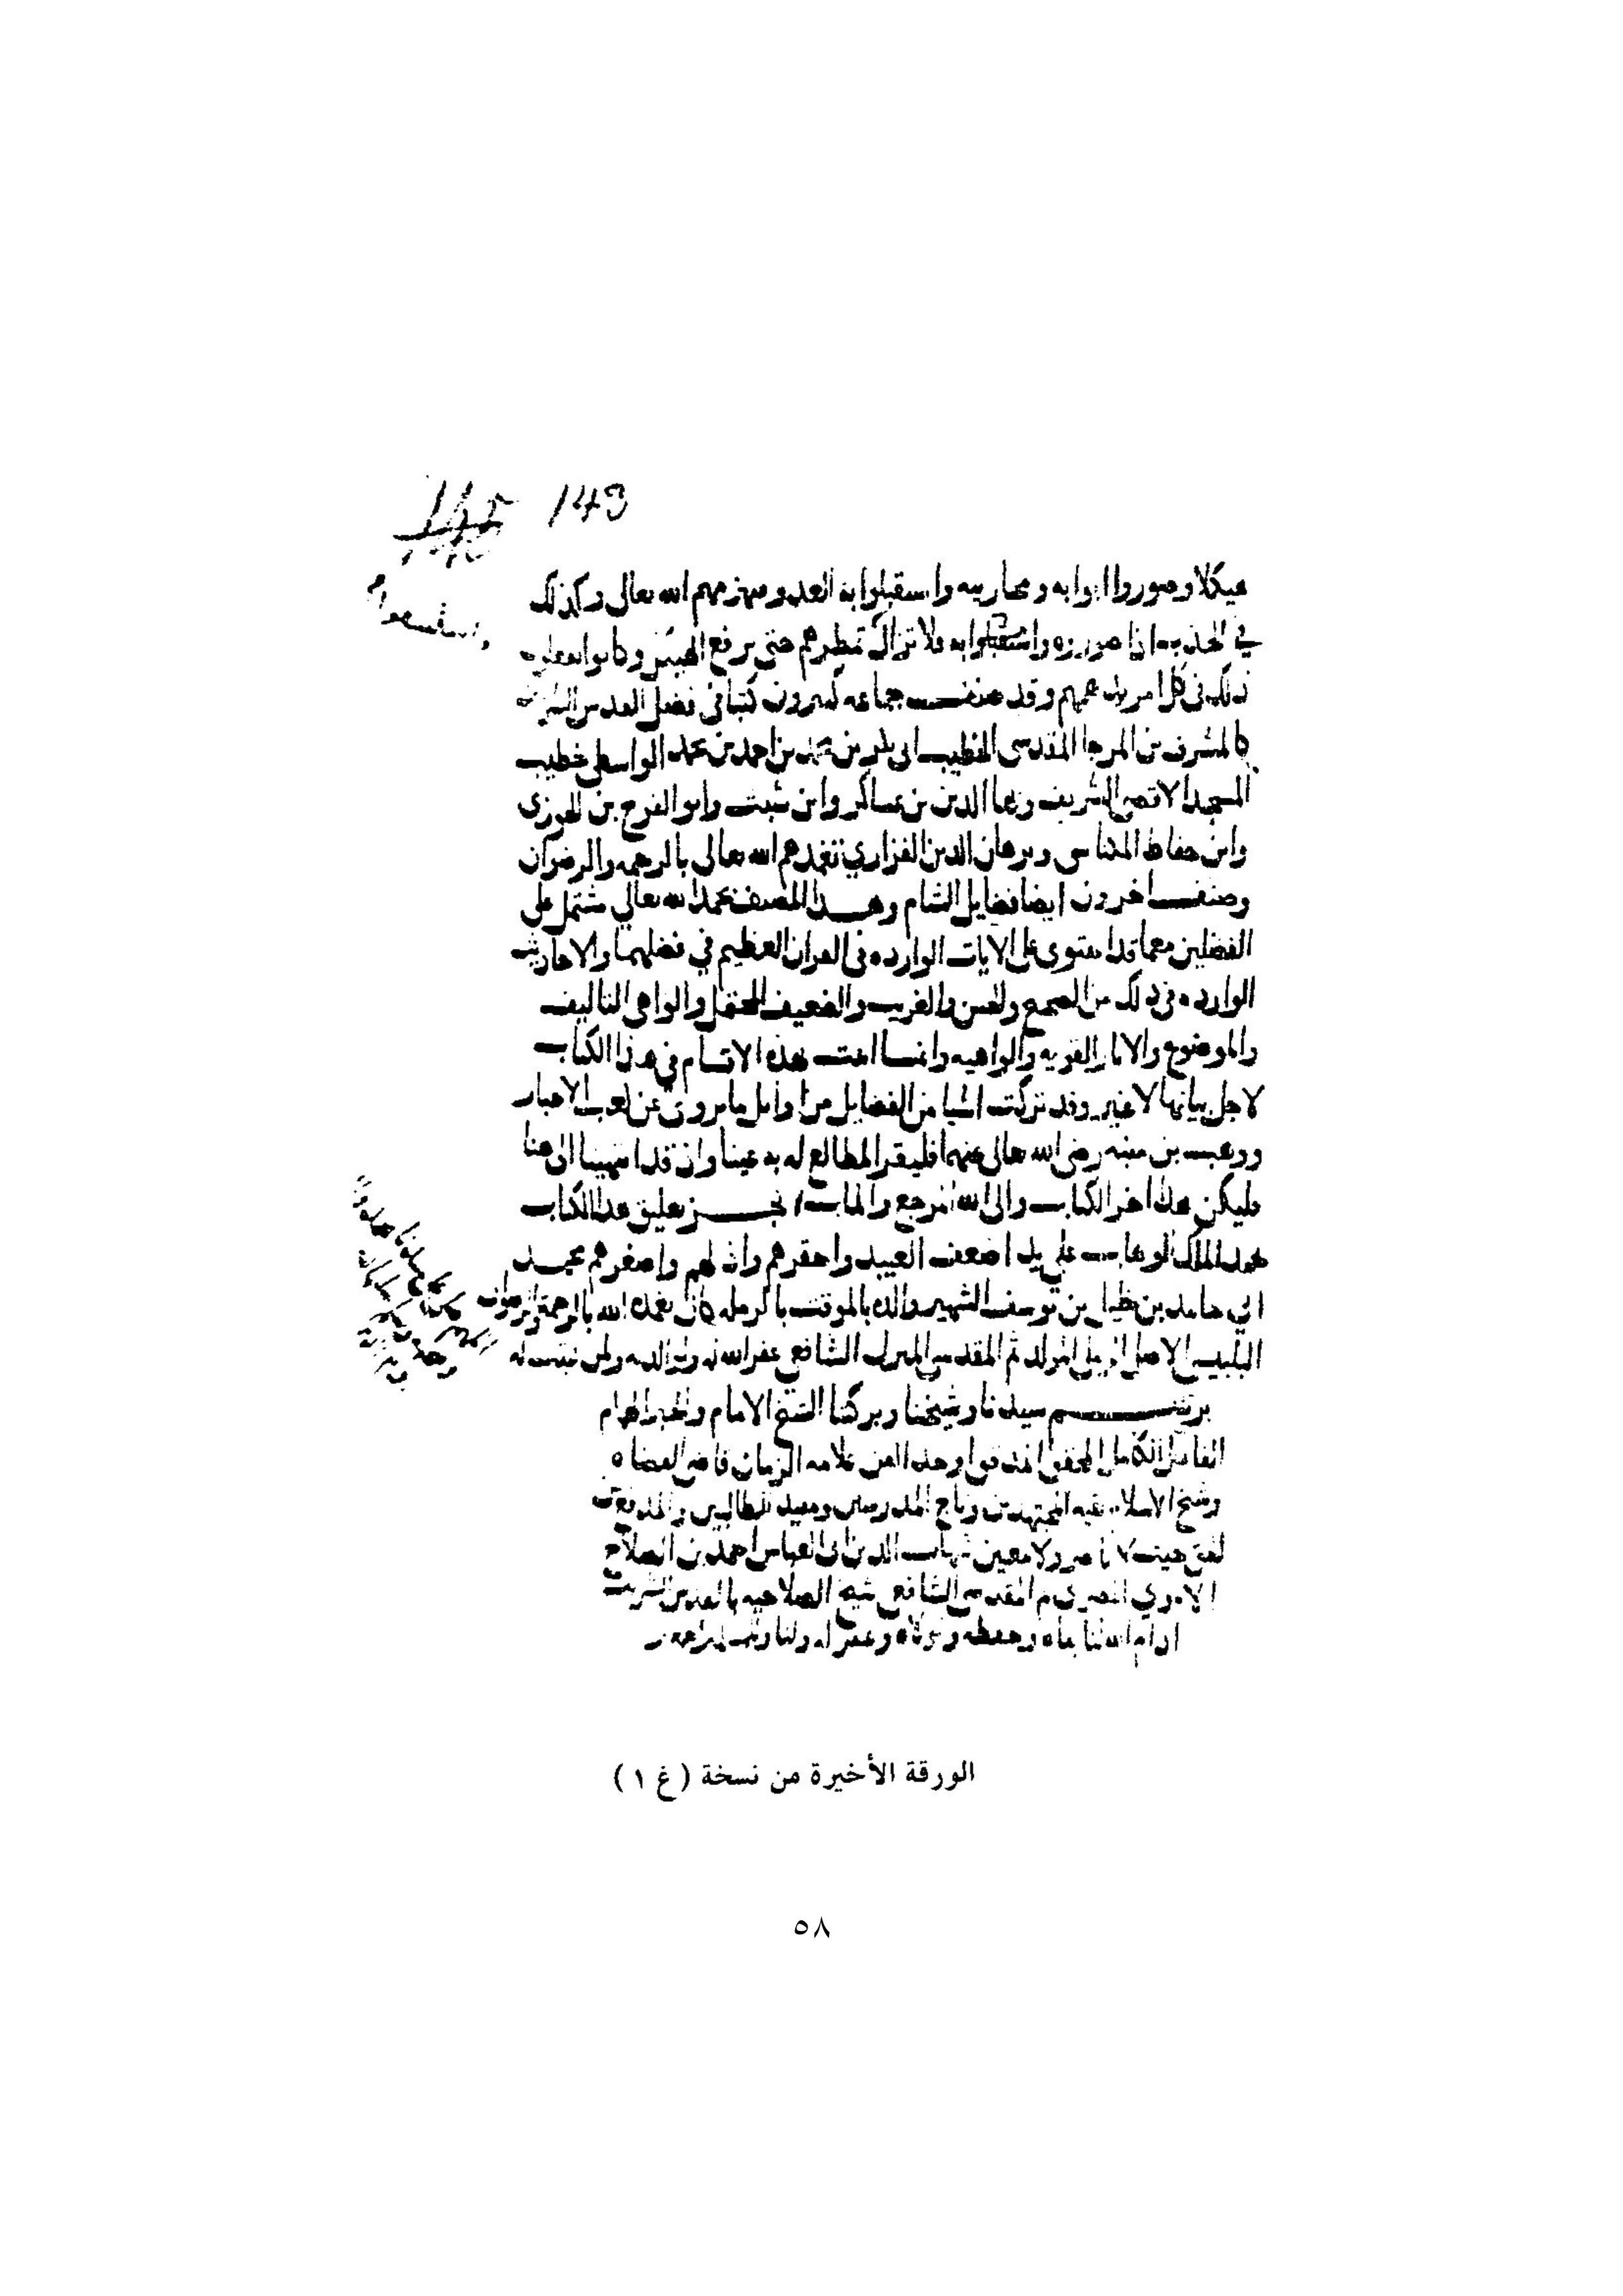 143
هيكلا وصوروا ابوابه ومحاريبه واستقبلوا به العدو فيهزمهم الله تعالى وكذلك
في الجدب اذا صوروه واستقبلوا به فلا تزال تمطرهم حتى يرفع الهيكل وكانوا
ذلك في كل امر يدهمهم وقد صنف جماعه كثيرون كتبا في فضل القدس الشريف
كالمشرف بن المرجا المقدسي الخطيب ابى بكر بن محمد بن احمد بن محمد الواسطي خطيب
المسجد الاقصى الشريف وبها الدين بن عساكر وابن وابو الفرج بن الجوزى
وابن حفاظ المكناسى وبرهان الدين الفزاري تغمدهم الله تعالى بالرحمه والرضوان
وصنف اخرون ايضا فضايل الشام وهذا المصنف بحمد الله تعالي مشتمل على
الفضلين معا قد احتوى على الايات الوارده في القران العظيم في فضلهما والاحاديث
الوارده في ذلك من الصحيح والحسن والغريب والضعيف المحتمل والواهي التاليف
والموضوع والاثار القويه والواهيه وانما هذه الاقسام في هذا الكتاب
لاجل بيانها لا غير وقد تركت اشيا من الفضايل من اوايل ما يروى عن كعب الاحبار
ووهب بن منبه رضى الله تعالى عنهما فليقر المطالع له به عينا واذ قد انتهينا الى هنا
فليكن هذا اخر الكتاب والى الله المرجع والماب نجز تعليق هذا الكتاب
بحمد الملك الوهاب على يد اضعف العبيد واحقرهم واذلهم واصغرهم محمد
ابي حامد بن خليل بن يوسف الشهير والده بالموقت بالرمله كان تغمده الله بالرحمة والرضوان
البلبيسي الاصل الرملي المولد ثم المقدسي المنزل الشافعي غفر الله له ولوالديه ولمن
برسم سيدنا وشيخنا وبركتنا الشيخ الامام والحبر الهمام
الفاضل الكامل المحقق المدقق اوحد علامه الزمان قاضى القضاه
وشيخ الاسلام بقيه المجتهدين وتاج المدرسين ومفيد الطالبين
لا ناصر ولا معين شهاب الدين ابى العباس احمد بن الصلاح
الاموي المصرى ثم المقدسى الشافعي شيخ الصلاحيه بالقدس الشريف
ادام الله لنا بقاه وحفظه وتولاه وغفر له ولنا
الورقة الأخيرة من نسخة ( غ ١ )
٥٨